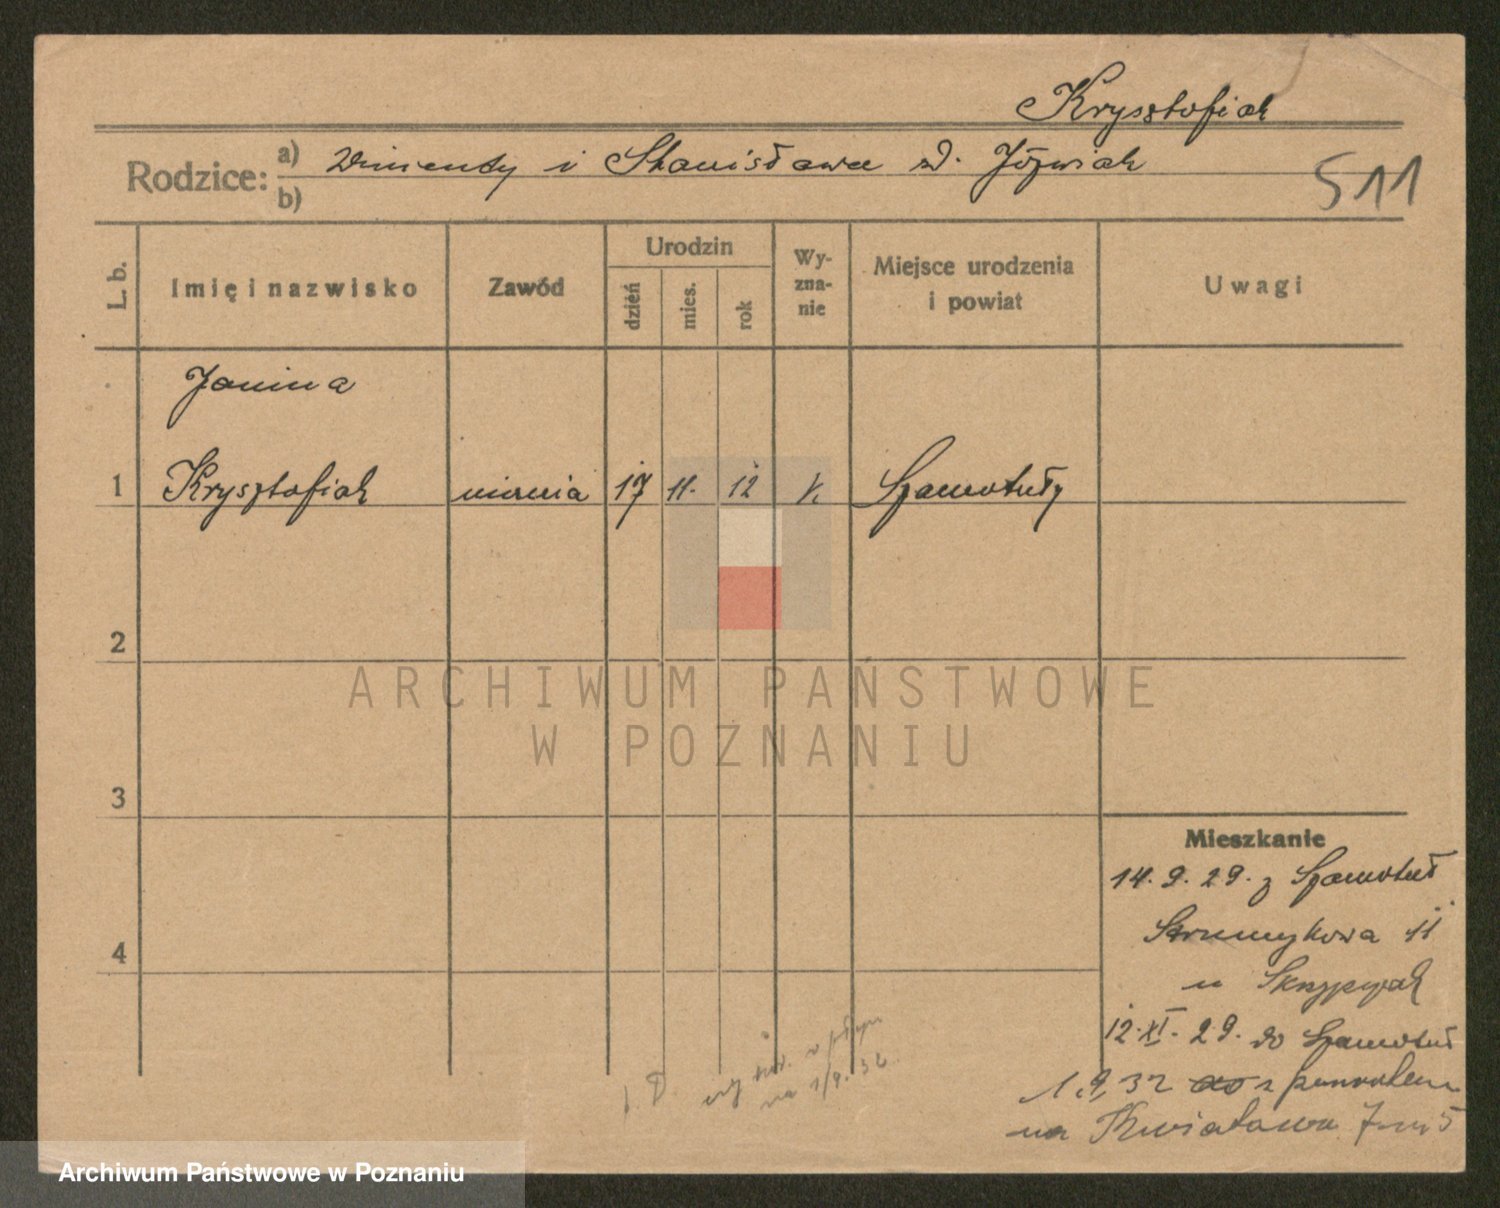 Krysztofiak
Rodzice: a) Wincenty i Stanisława z d. Jóźwiak
b)
511
L. b.
Imię i nazwisko
Zawód
Urodzin
dzień
mies.
rok
Wy-
zna-
nie
Miejsce urodzenia
i powiat
Uwagi
Janina
1 Krysztofiak uczenia 17 11. 12 k. Szamotuły
2
3
4
ARCHIWUM PAŃSTWOWE
W POZNANIU
Mieszkanie
14. 9. 29. z Szamotuł
Strumykowa 11
u Skrzypczak
12. XI. 29. do Szamotuł
1. 9. 32 z powrotem
na Kwiatowa 7 m 5
na 1/9. 32
Archiwum Państwowe w Poznaniu